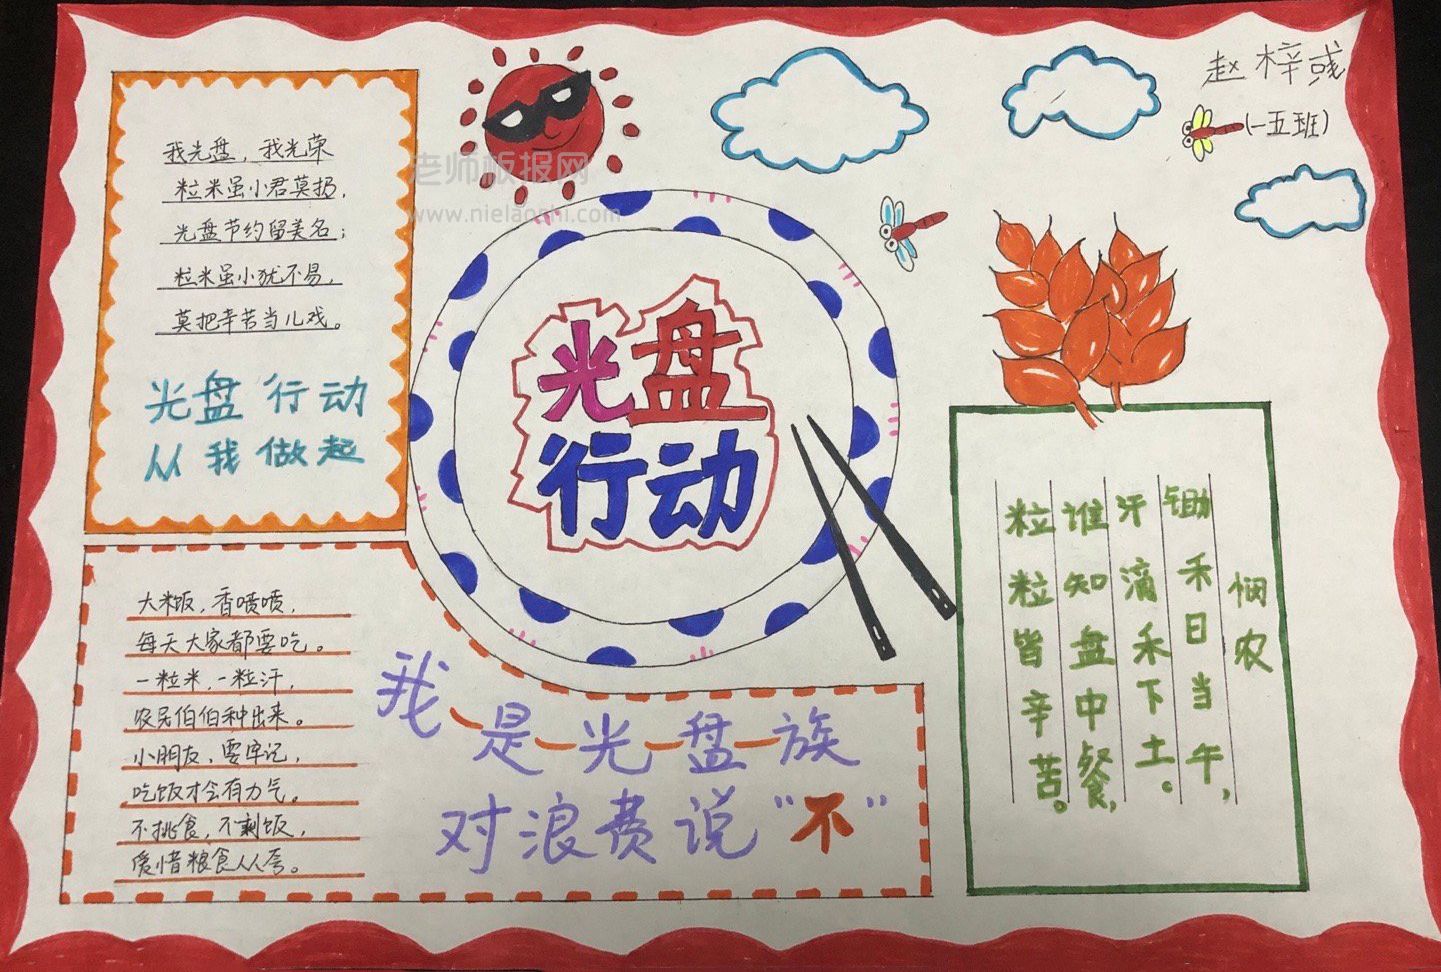 赵梓彧
(一五班)
老师板报网
www.nielaoshi.com
我光盘，我光荣
粒米虽小君莫扔，
光盘节约留美名；
粒米虽小犹不易，
莫把辛苦当儿戏。
光盘行动
从我做起
光盘
行动
大米饭，香喷喷，
每天大家都要吃。
一粒米，一粒汗，
农民伯伯种出来。
小朋友，要牢记，
吃饭才会有力气。
不挑食，不剩饭，
爱惜粮食人人夸。
我是光盘族
对浪费说“不”
悯农
锄禾日当午，
汗滴禾下土。
谁知盘中餐，
粒粒皆辛苦。